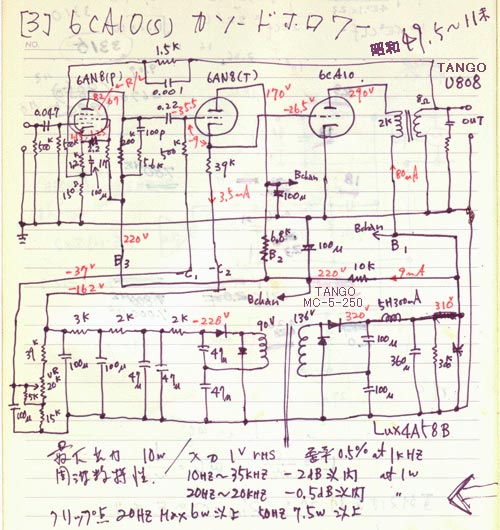 [3] 6CA10(S) カソードホロワー
昭和 49.5〜11末
NO.
1.5K
TANGO
U808
6AN8(P)
R/L
0.001
6AN8(T)
170V
6CA10
290V
0.047
0.22
-26.5
2K
8Ω
OUT
100P
200K
500K
56K
39K
3.5mA
80mA
100μ
Bchan
100μ
6.8K
B2
100μ
Bchan
B1
220V
B3
-37V
-162V
C1
C2
220V
10K
9mA
Bchan
TANGO
MC-5-250
3K
2K
2K
-228V
90V
136V
320V
5H300mA
310
39K
VR
20K
15K
100μ
100μ
100μ
47μ
47μ
47μ
47μ
100μ
100μ
360μ
300K
Lux4A58B
最大出力 10W / 入力 1V rms 歪率0.5% at 1KHz
周波数特性. 10HZ〜35KHZ -2dB以内 at 1W
20HZ〜20KHZ -0.5dB以内 〃
クリップ点 20HZ Max 6W以上 50HZ 7.5W以上